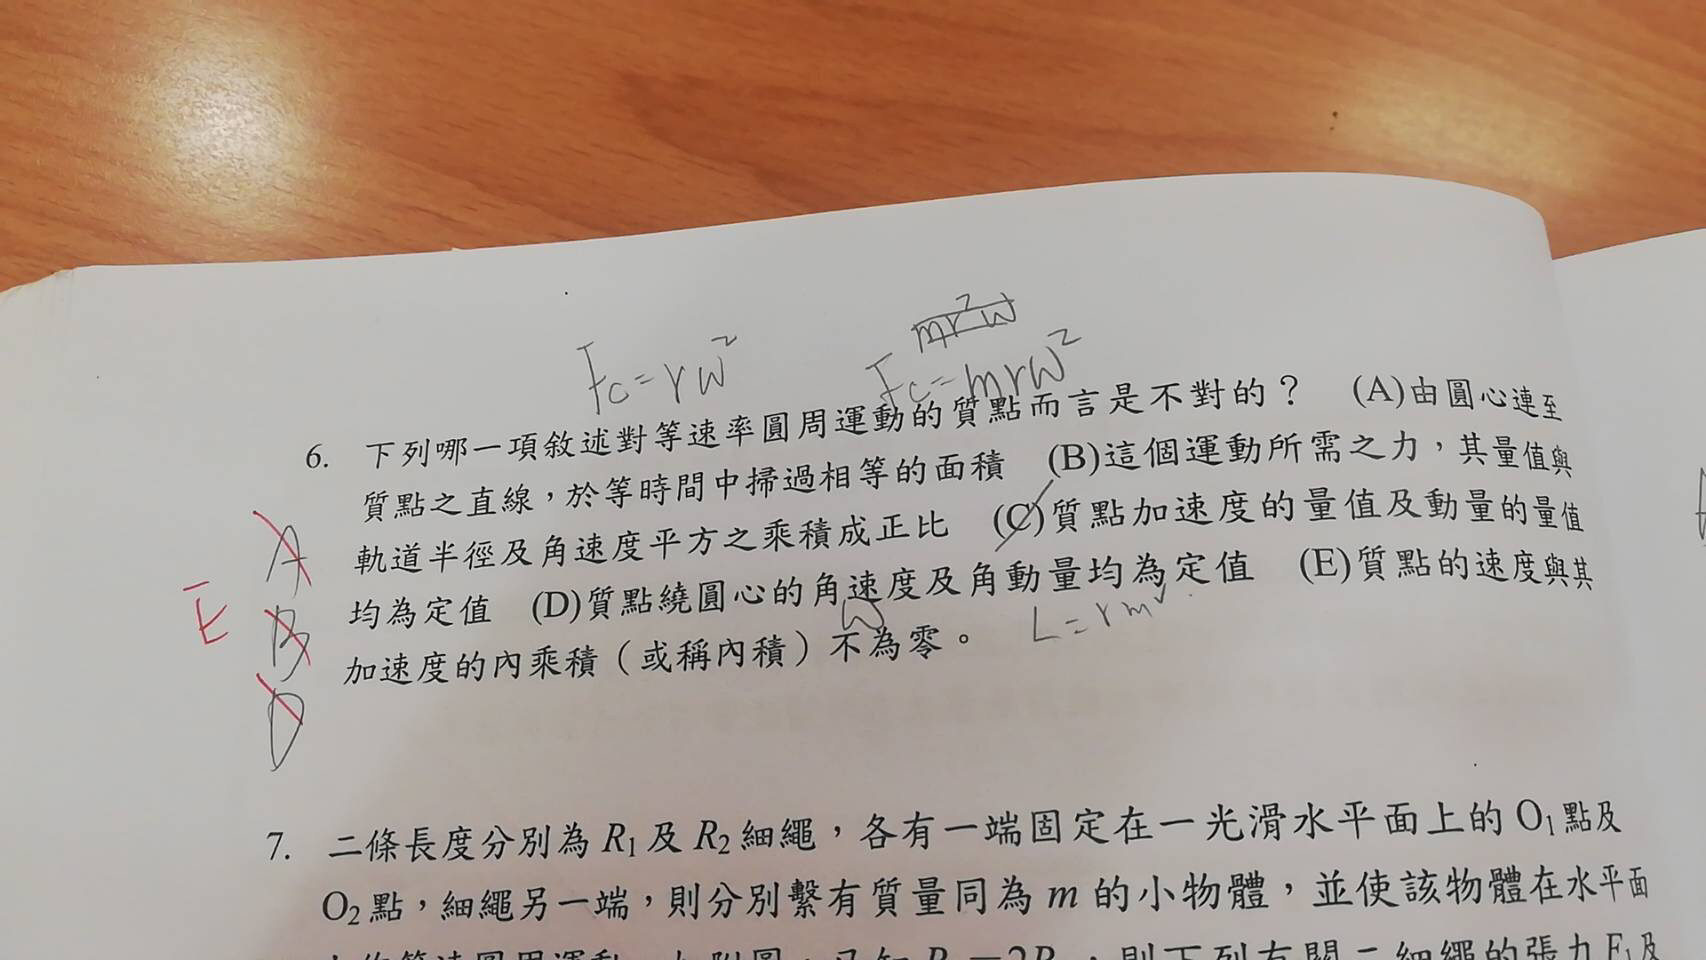 mr²w
Fc=rw²
Fc=mrw²
6. 下列哪一項敘述對等速率圓周運動的質點而言是不對的? (A)由圓心連至
質點之直線,於等時間中掃過相等的面積 (B)這個運動所需之力,其量值與
軌道半徑及角速度平方之乘積成正比 (C)質點加速度的量值及動量的量值
均為定值 (D)質點繞圓心的角速度及角動量均為定值 (E)質點的速度與其
w
L=rmv
加速度的內乘積(或稱內積)不為零。
A
B
D
E
7. 二條長度分別為 R₁ 及 R₂ 細繩,各有一端固定在一光滑水平面上的 O₁ 點及
O₂ 點,細繩另一端,則分別繫有質量同為 m 的小物體,並使該物體在水平面